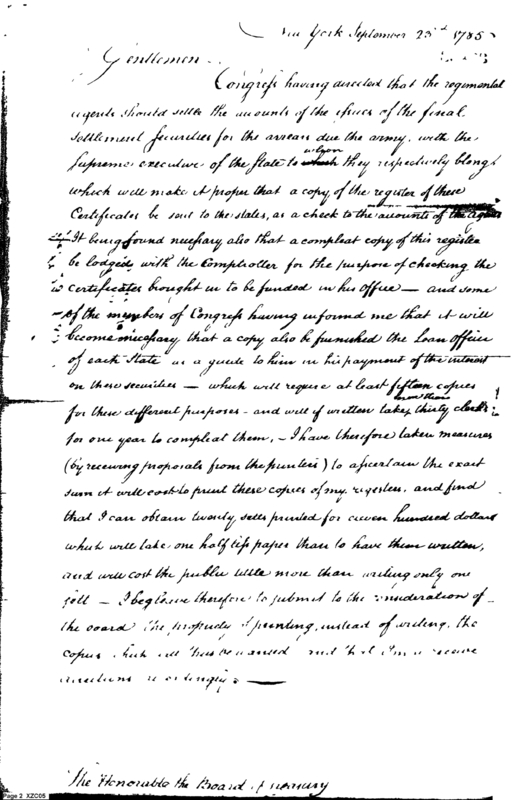 New York September 23d 1785
Gentlemen
Congress having directed that the regimental
agents should settle the accounts of the issues of the final
settlement securities for the arrears due the army, with the
supreme executive of the State to which they respectively belong
which will make it proper that a copy of the register of these
Certificates be sent to the states, as a check to the accounts of the agents
It being found necessary also that a compleat copy of this register
be lodged with the Comptroller for the purpose of checking the
certificates brought in to be funded in his office — and some
of the members of Congress having informed me that it will
become necessary that a copy also be furnished the Loan Officer
of each State as a guide to him in his payment of the interest
on these securities — which will require at least fifteen copies
more than
for these different purposes - and will if written take thirty clerks
for one year to compleat them, - I have therefore taken measures
(by receiving proposals from the printers) to ascertain the exact
sum it will cost to print these copies of my registers, and find
that I can obtain twenty setts printed for eleven hundred dollars
which will take one half less paper than to have them written,
and will cost the public little more than writing only one
sett — I beg leave therefore to submit to the consideration of
the board the propriety of printing, instead of writing, the
copies which will be wanted and that I may receive
directions accordingly. —
The Honorable the Board of Treasury
Page 2 XZC05